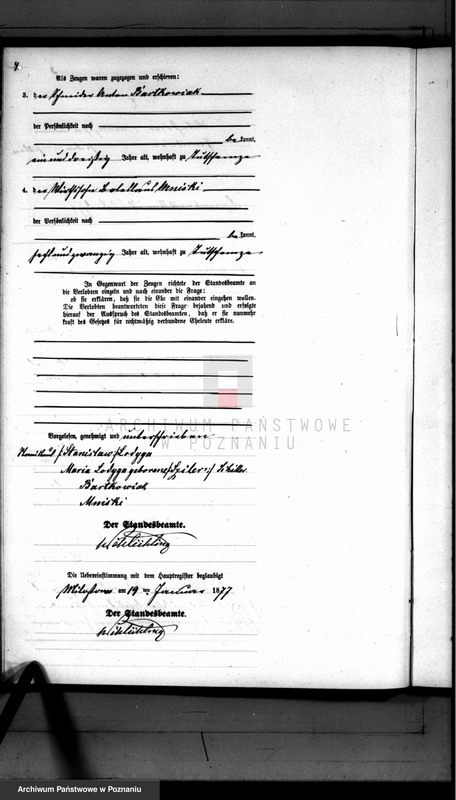 Als Zeugen waren zugezogen und erschienen:
3. der Schneider Anton Bartkowiak
der Persönlichkeit nach
bekannt,
ein und dreißig Jahre alt, wohnhaft zu
4. der Boleslaus Mniski
der Persönlichkeit nach
bekannt,
zwanzig Jahre alt, wohnhaft zu
In Gegenwart der Zeugen richtete der Standesbeamte an
die Verlobten einzeln und nach einander die Frage:
ob sie erklären, daß sie die Ehe mit einander eingehen wollen.
Die Verlobten beantworteten diese Frage bejahend und erfolgte
hierauf der Ausspruch des Standesbeamten, daß er sie nunmehr
kraft des Gesetzes für rechtmäßig verbundene Eheleute erkläre.
ARCHIWUM PAŃSTWOWE
W POZNANIU
Vorgelesen, genehmigt und unterschrieben
Stanislaw Lodyga
Maria Lodyga geborene
Bartkowiak
Mniski
Der Standesbeamte.
Die Uebereinstimmung mit dem Hauptregister beglaubigt
am 19 ten Januar 1877
Der Standesbeamte.
Archiwum Państwowe w Poznaniu